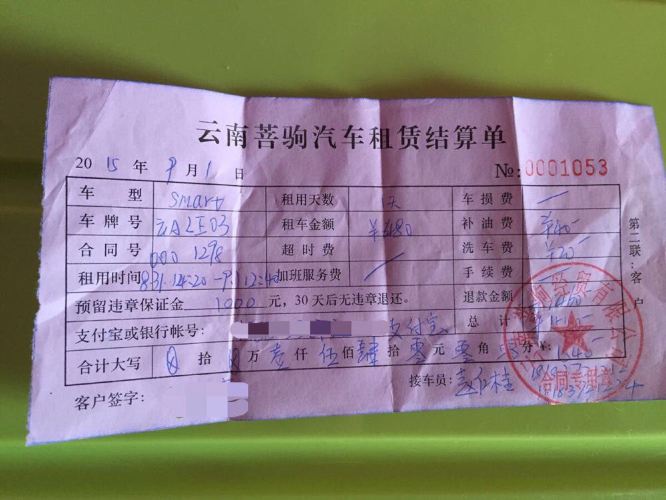 云南菩驹汽车租赁结算单
2015年9月1日 №:0001053
车型 smart 租用天数 1天 车损费 —
车牌号 租车金额 ¥480 补油费 ¥40-
合同号 0001298 超时费 洗车费 ¥20-
租用时间 8.31 12:20-9.1 12:40 加班服务费 / 手续费 —
预留违章保证金 1000 元,30天后无违章退还。 退款金额
支付宝或银行帐号: 支付宝 总计
合计大写 拾 万 壹仟 伍佰 肆拾 零元 零角 分
客户签字: 接车员:
第二联:客户
合同专用章